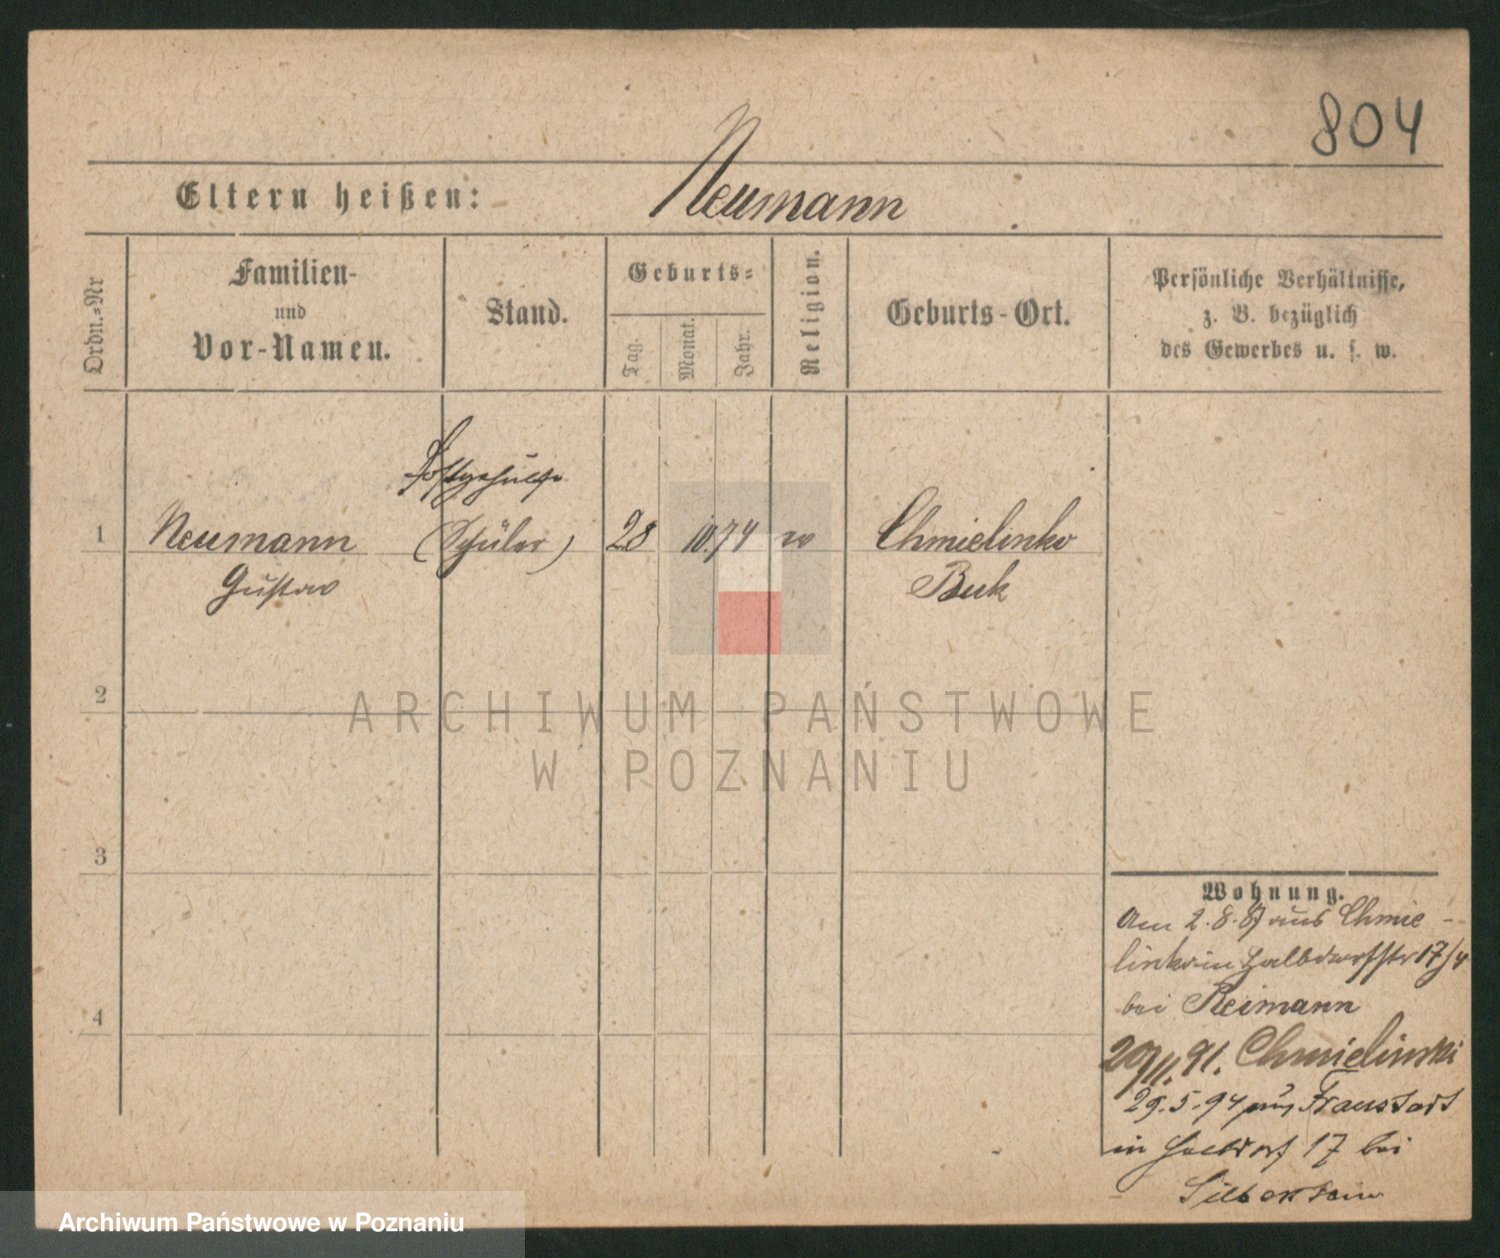 804
Eltern heißen: Neumann
Ordn.=Nr
Familien-
und
Vor-Namen.
Stand.
Geburts=
Tag.
Monat.
Jahr.
Religion.
Geburts-Ort.
Persönliche Verhältnisse,
z. B. bezüglich
des Gewerbes u. s. w.
Postgehülfe
1 Neumann (Schüler) 28 10. 74 Chmielinko
Gustav Buk
2
ARCHIWUM PAŃSTWOWE
W POZNANIU
3
Wohnung.
Am 2.8.87 aus Chmie-
linko in Halbdorfstr 17/4
bei Reimann
4
29/11.91. Chmielinski
29.5.94 aus Fraustadt
in Halbdorf 17 bei
Silberstein
Archiwum Państwowe w Poznaniu